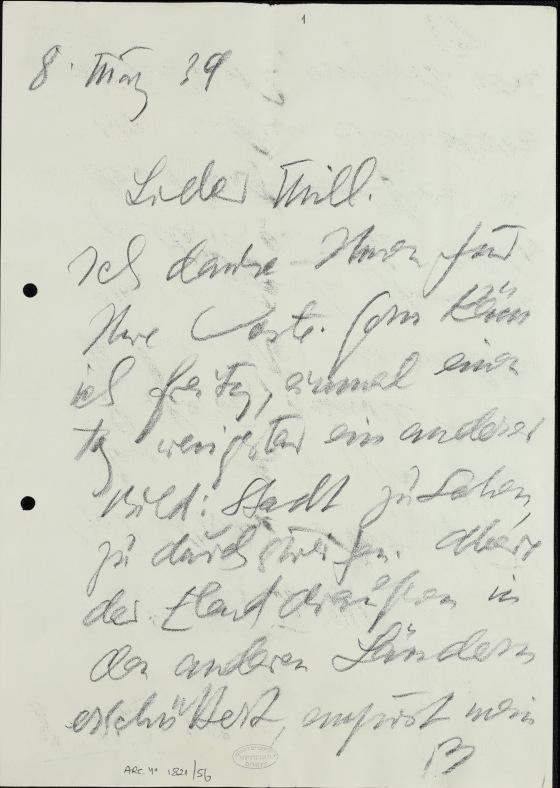 1
8. März 39
Lieber Will.
Ich danke Ihnen für
Ihre Karte. Gern käm
ich freitag, einmal einen
Tag wenigsten ein anderes
Bild: Stadt zu sehen,
zu durchstreifen. Aber
der Elend draußen in
den anderen Ländern
erschüttert, empört mein
ARC. 4° 1821/56